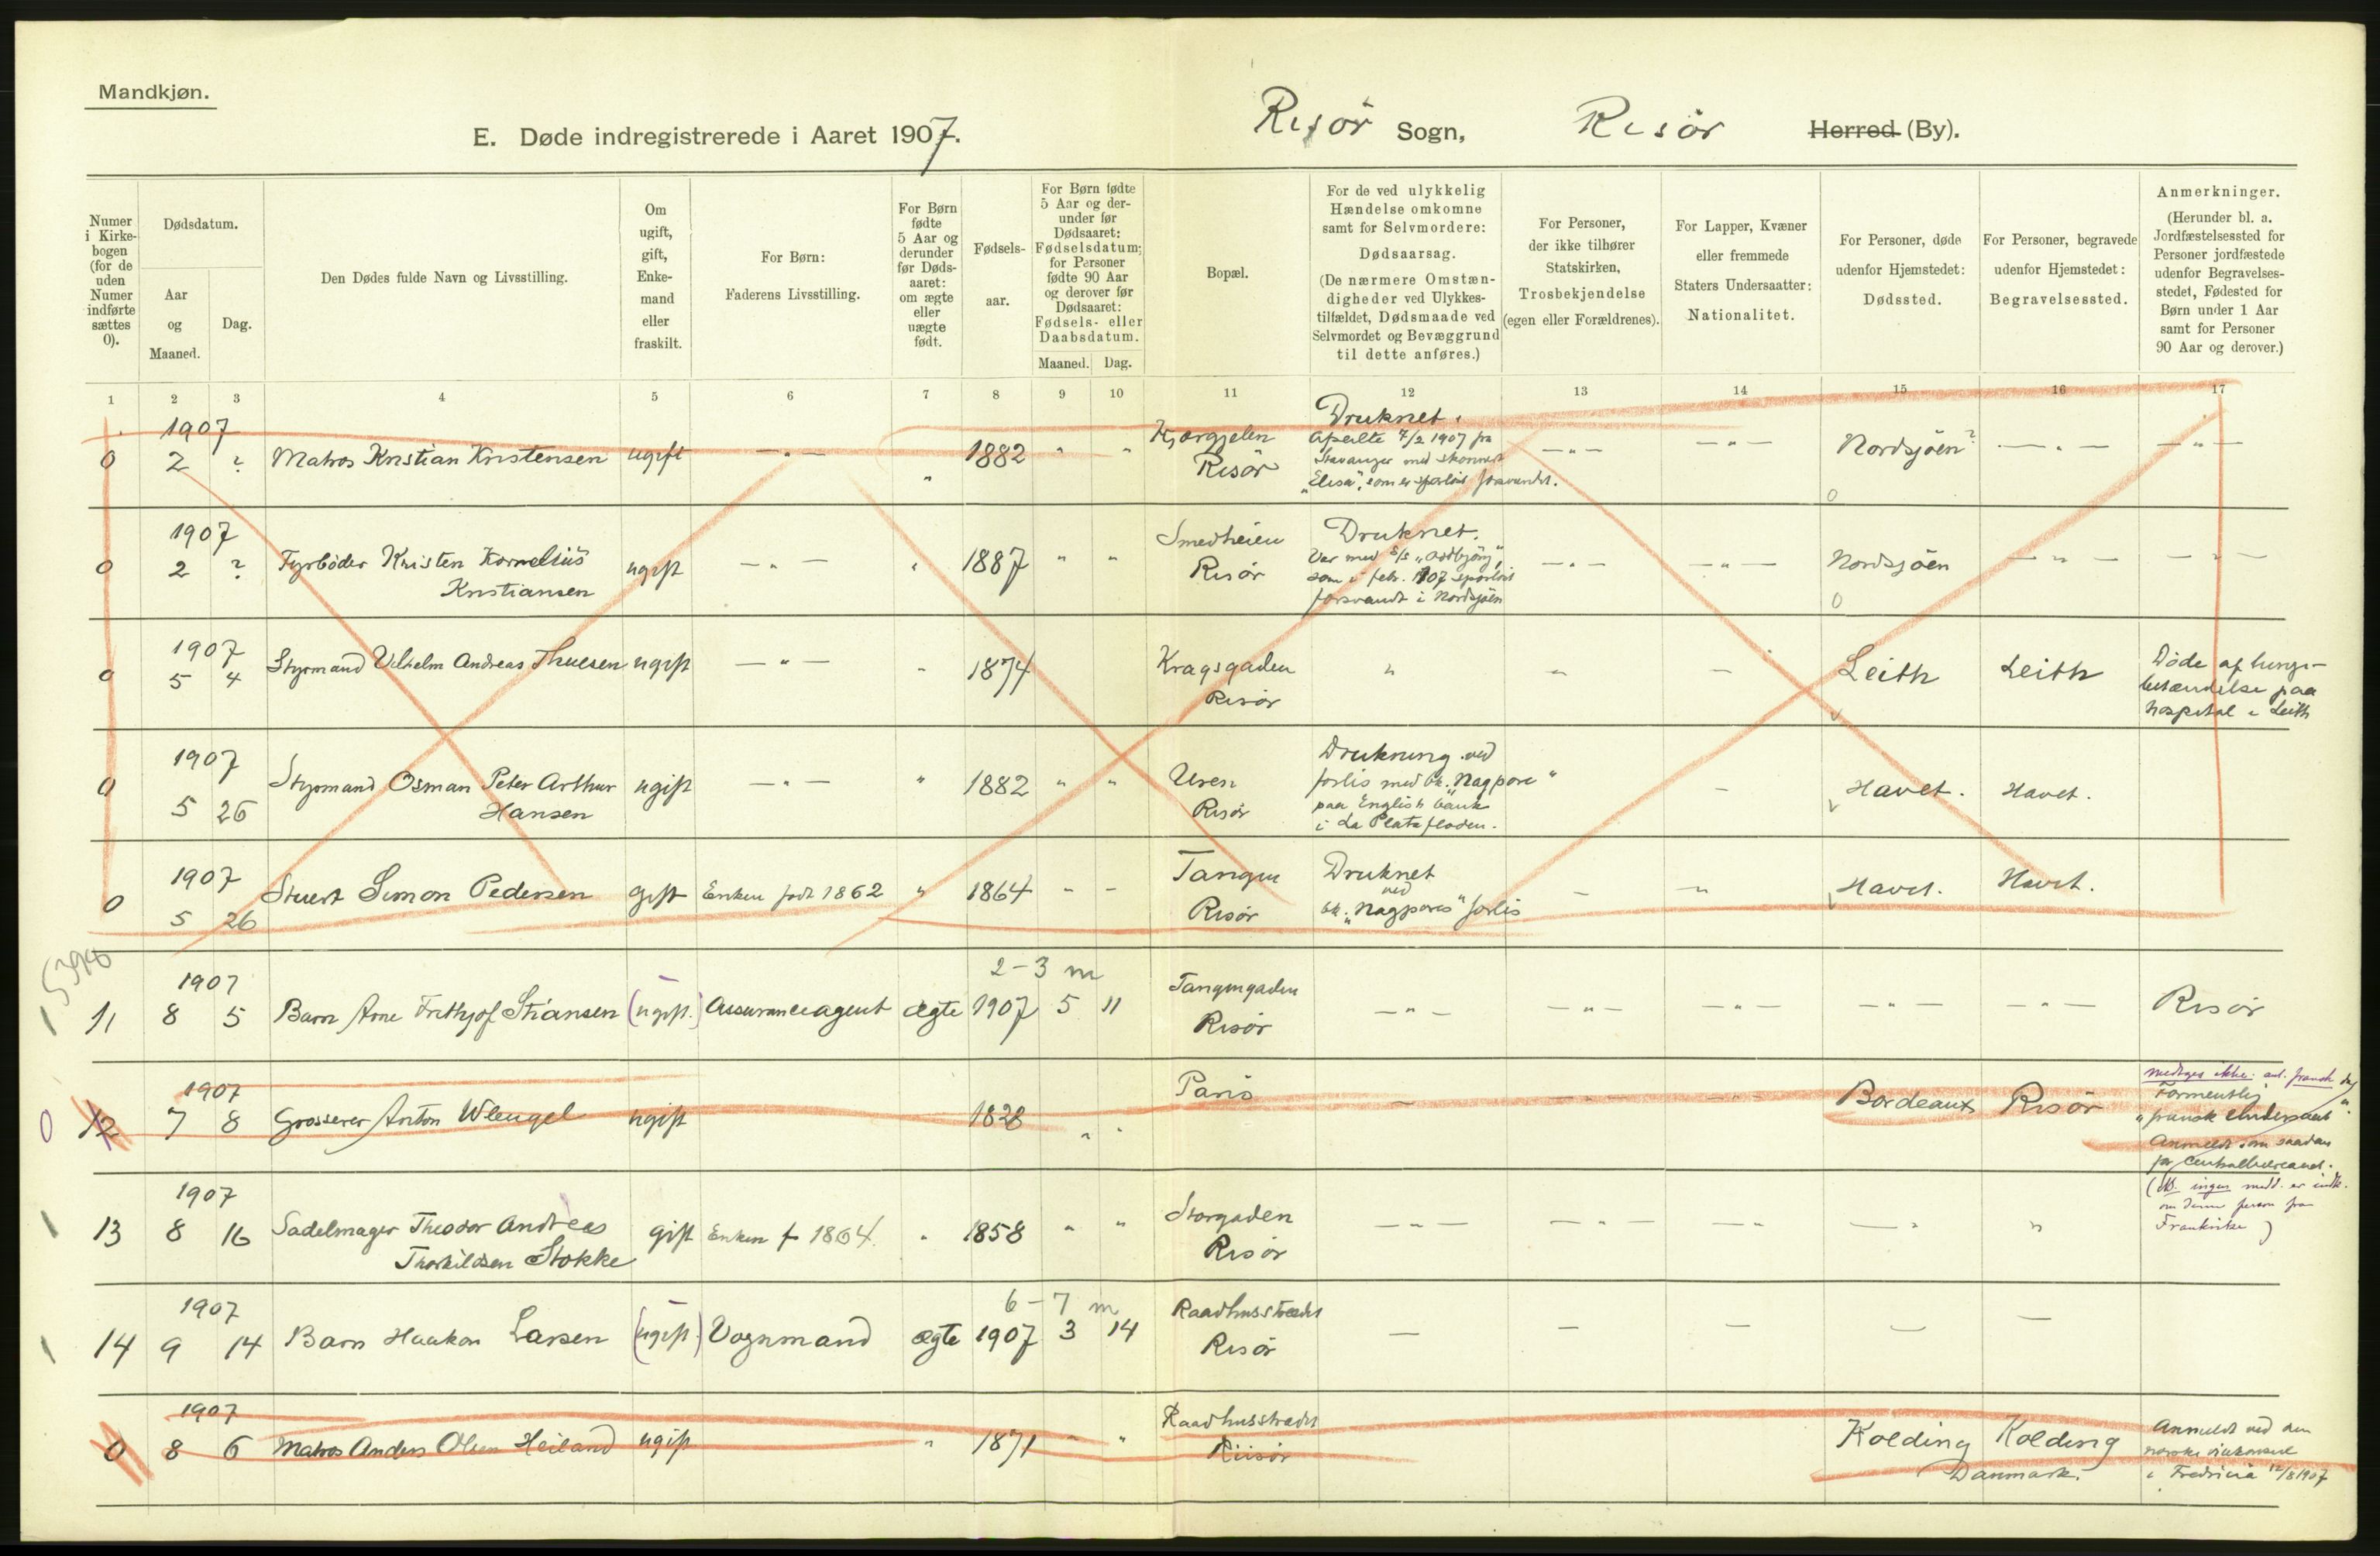 Mandkjøn.
E. Døde indregistrerede i Aaret 1907.
Risör Sogn, Risör Herred (By).
Numer i Kirkebogen (for de uden Numer indførte sættes 0).
Dødsdatum.
Aar og Maaned.
Dag.
Den Dødes fulde Navn og Livsstilling.
Om ugift, gift, Enkemand eller fraskilt.
For Børn: Faderens Livsstilling.
For Børn fødte 5 Aar og derunder før Dødsaaret: om ægte eller uægte født.
Fødselsaar.
For Børn fødte 5 Aar og derunder før Dødsaaret: Fødselsdatum; for Personer fødte 90 Aar og derover før Dødsaaret: Fødsels- eller Daabsdatum.
Maaned. Dag.
Bopæl.
For de ved ulykkelig Hændelse omkomne samt for Selvmordere: Dødsaarsag. (De nærmere Omstændigheder ved Ulykkestilfældet, Dødsmaade ved Selvmordet og Bevæggrund til dette anføres.)
For Personer, der ikke tilhører Statskirken, Trosbekjendelse (egen eller Forældrenes).
For Lapper, Kvæner eller fremmede Staters Undersaatter: Nationalitet.
For Personer, døde udenfor Hjemstedet: Dødssted.
For Personer, begravede udenfor Hjemstedet: Begravelsessted.
Anmerkninger. (Herunder bl. a. Jordfæstelsessted for Personer jordfæstede udenfor Begravelsesstedet, Fødested for Børn under 1 Aar samt for Personer 90 Aar og derover.)
1 2 3 4 5 6 7 8 9 10 11 12 13 14 15 16 17
0 1907 2 ? Matros Kristian Kristensen ugift — " — " 1882 " " Kjærgjelen Risör
Druknet.
Afseilte 7/2 1907 fra
Stavanger med skonnert
"Elisa", som er sporløst forsvundet.
— " — — " — Nordsjöen? — " — — " —
0
0 1907 2 ? Fyrböder Kristen Kornelius Kristiansen ugift — " — " 1887 " " Smedheien Risör
Druknet.
Var med S/S
som i febr. 1907 sporløst
forsvandt i Nordsjöen
— " — — " — Nordsjöen — " — — " —
0
0 1907 5 4 Styrmand Vilhelm Andreas Thuesen ugift — " — " 1874 Kragsgaden Risör " " — Leith Leith
Döde af lunge-
betændelse paa
hospital i Leith
0 1907 5 26 Styrmand Osman Peter Arthur Hansen ugift — " — " 1882 " " Uren Risör
Drukning ved
forlis med bk. "Nagpore"
paa English bank
i La Platafloden.
— Havet. Havet.
0 1907 5 26 Stuert Simon Pedersen gift Enken födt 1862 " 1864 " " Tangen Risör
Druknet
ved
bk. "Nagpores" forlis
— " Havet. Havet.
5398
2-3 m
11 1907 8 5 Barn Arne Frithjof Stiansen (ugift.) Assuranceagent ægte 1907 5 11 Tangengaden Risör — " — — " — — " — — " — — " — Risör
0 12 1907 7 8 Grosserer Anton Wleugel ugift 1828 " " Paris — Bordeaux Risör
medtages ikke.
Formentlig
"fransk Undersaat".
Anmeldt som saadan
for Centralbureauet.
(NB. ingen medd. er indk.
om denne person fra
Frankrike)
13 1907 8 16 Sadelmager Theodor Andreas Thorkildsen Stokke gift Enken f. 1864. " 1858 " " Storgaden Risör — " — — " — — " — — " "
6-7 m
14 1907 9 14 Barn Haakon Larsen (ugift.) Vognmand ægte 1907 3 14 Raadhusstrædet Risör — — — — —
0 1907 8 6 Matros Anders Olsen Heiland ugift " 1871 " " Raadhusstrædet Riisör Kolding Danmark. Kolding
Anmeldt ved den
norske vicekonsul
i Fredricia 12/8 1907